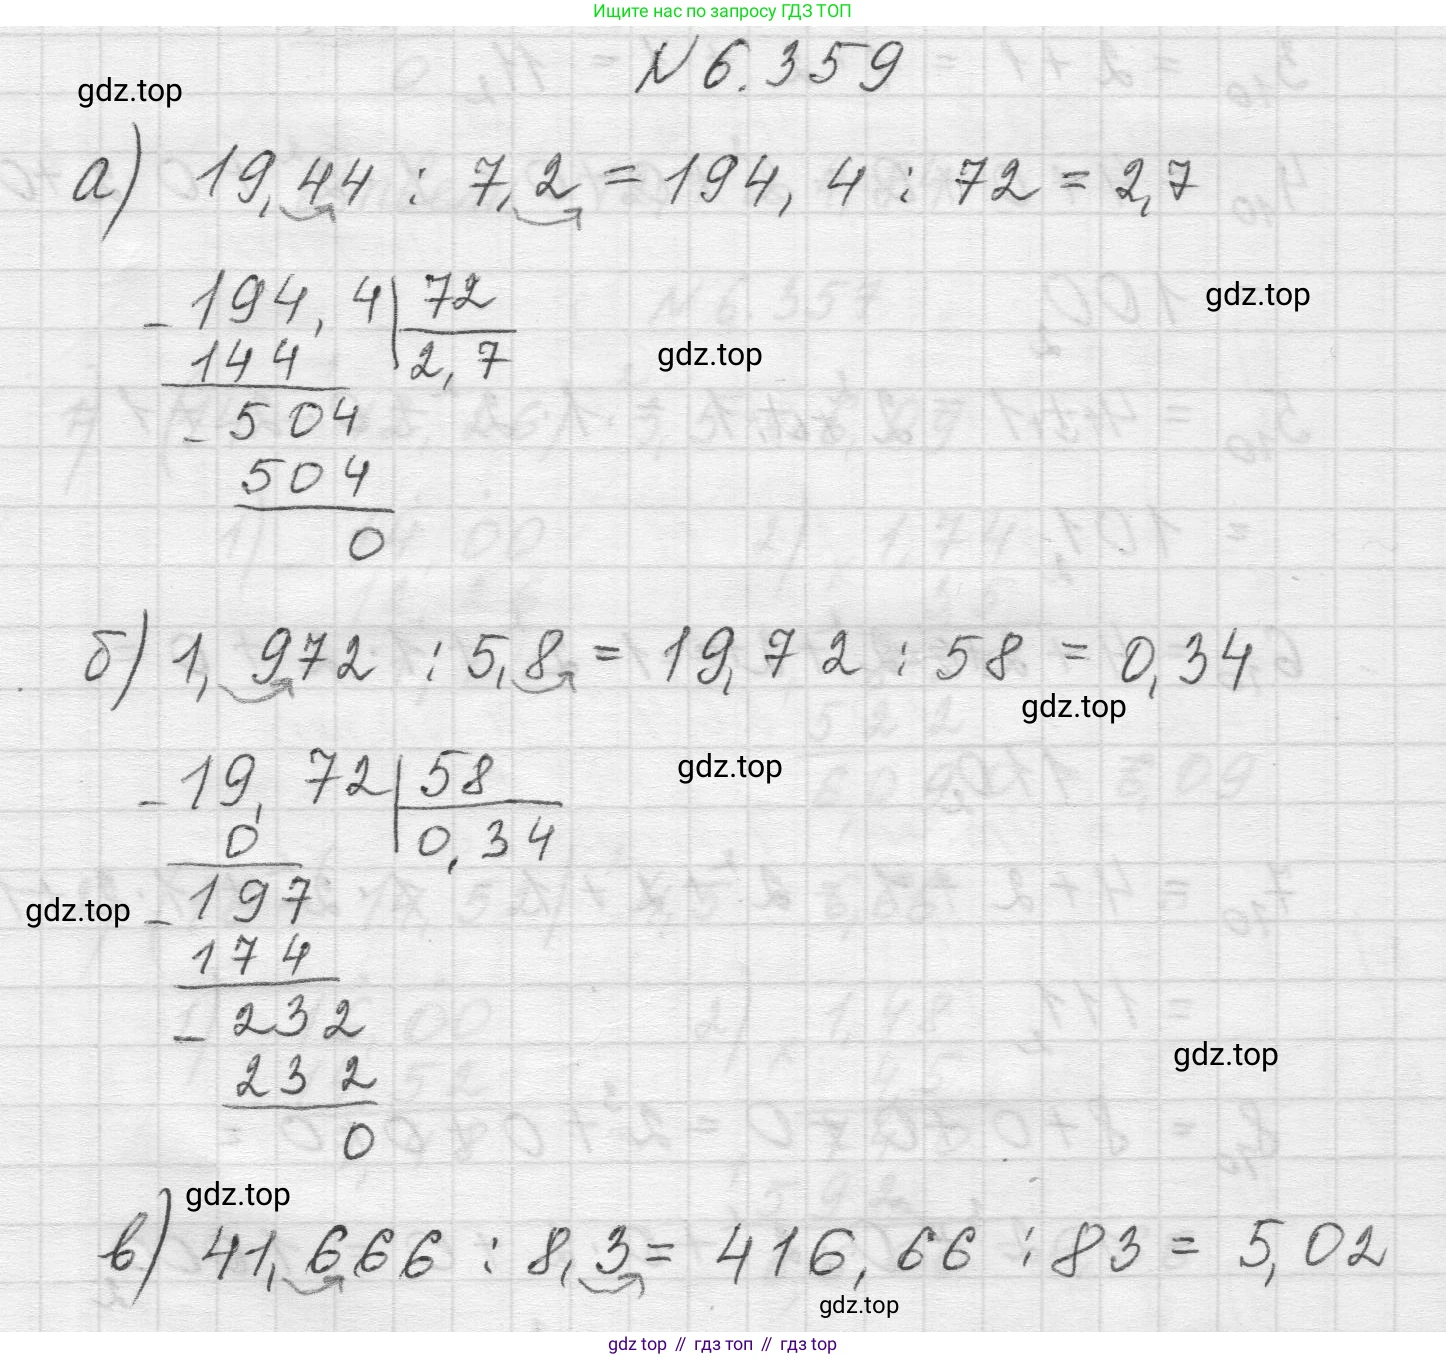 Ищите нас по запросу ГДЗ ТОП
№ 6.359
gdz.top
а) 19,44 : 7,2 = 194,4 : 72 = 2,7
- 194,4 | 72
gdz.top
144 | 2,7
gdz.top
- 504
504
0
б) 1,972 : 5,8 = 19,72 : 58 = 0,34
gdz.top
- 19,72 | 58
gdz.top
0 | 0,34
- 197
gdz.top
174
- 232
gdz.top
232
0
gdz.top
в) 41,666 : 8,3 = 416,66 : 83 = 5,02
gdz.top
gdz top // гдз топ // гдз top